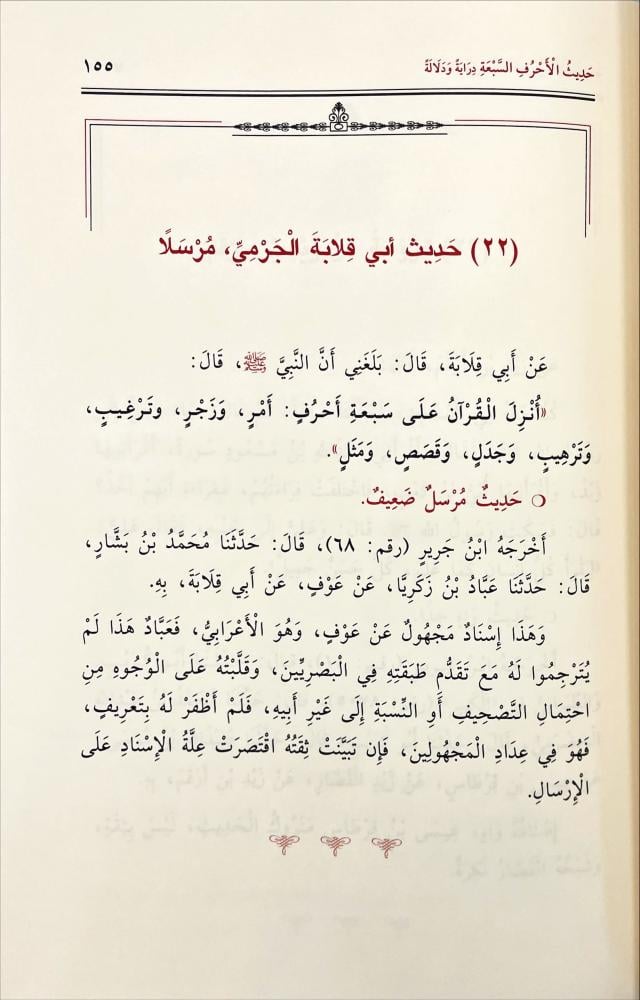 حَدِيثُ الْأَحْرُفِ السَّبْعَةِ دِرَايَةً وَدَلَالَةً ١٥٥
(٢٢) حَدِيث أبي قِلابَةَ الْجَرْمِيِّ، مُرْسَلًا
عَنْ أَبِي قِلَابَةَ، قَالَ: بَلَغَنِي أَنَّ النَّبِيَّ ﷺ، قَالَ:
«أُنْزِلَ الْقُرْآنُ عَلَى سَبْعَةِ أَحْرُفٍ: أَمْرٍ، وَزَجْرٍ، وتَرْغِيبٍ،
وَتَرْهِيبٍ، وَجَدَلٍ، وَقَصَصٍ، وَمَثَلٍ».
❍ حَدِيثٌ مُرْسَلٌ ضَعِيفٌ.
أَخْرَجَهُ ابْنُ جَرِيرٍ (رقم: ٦٨)، قَالَ: حَدَّثَنَا مُحَمَّدُ بْنُ بَشَّارٍ،
قَالَ: حَدَّثَنَا عَبَّادُ بْنُ زَكَرِيَّا، عَنْ عَوْفٍ، عَنْ أَبِي قِلَابَةَ، بِهِ.
وَهَذَا إِسْنَادٌ مَجْهُولٌ عَنْ عَوْفٍ، وَهُوَ الْأَعْرَابِيُّ، فَعَبَّادٌ هَذَا لَمْ
يُتَرْجِمُوا لَهُ مَعَ تَقَدُّمِ طَبَقَتِهِ فِي الْبَصْرِيِّينَ، وَقَلَّبْتُهُ عَلَى الْوُجُوهِ مِنِ
احْتِمَالِ التَّصْحِيفِ أَوِ النِّسْبَةِ إِلَى غَيْرِ أَبِيهِ، فَلَمْ أَظْفَرْ لَهُ بِتَعْرِيفٍ،
فَهُوَ فِي عِدَادِ الْمَجْهُولِينَ، فَإِن تَبَيَّنَتْ ثِقَتُهُ اقْتَصَرَتْ عِلَّةُ الْإِسْنَادِ عَلَى
الْإِرْسَالِ.